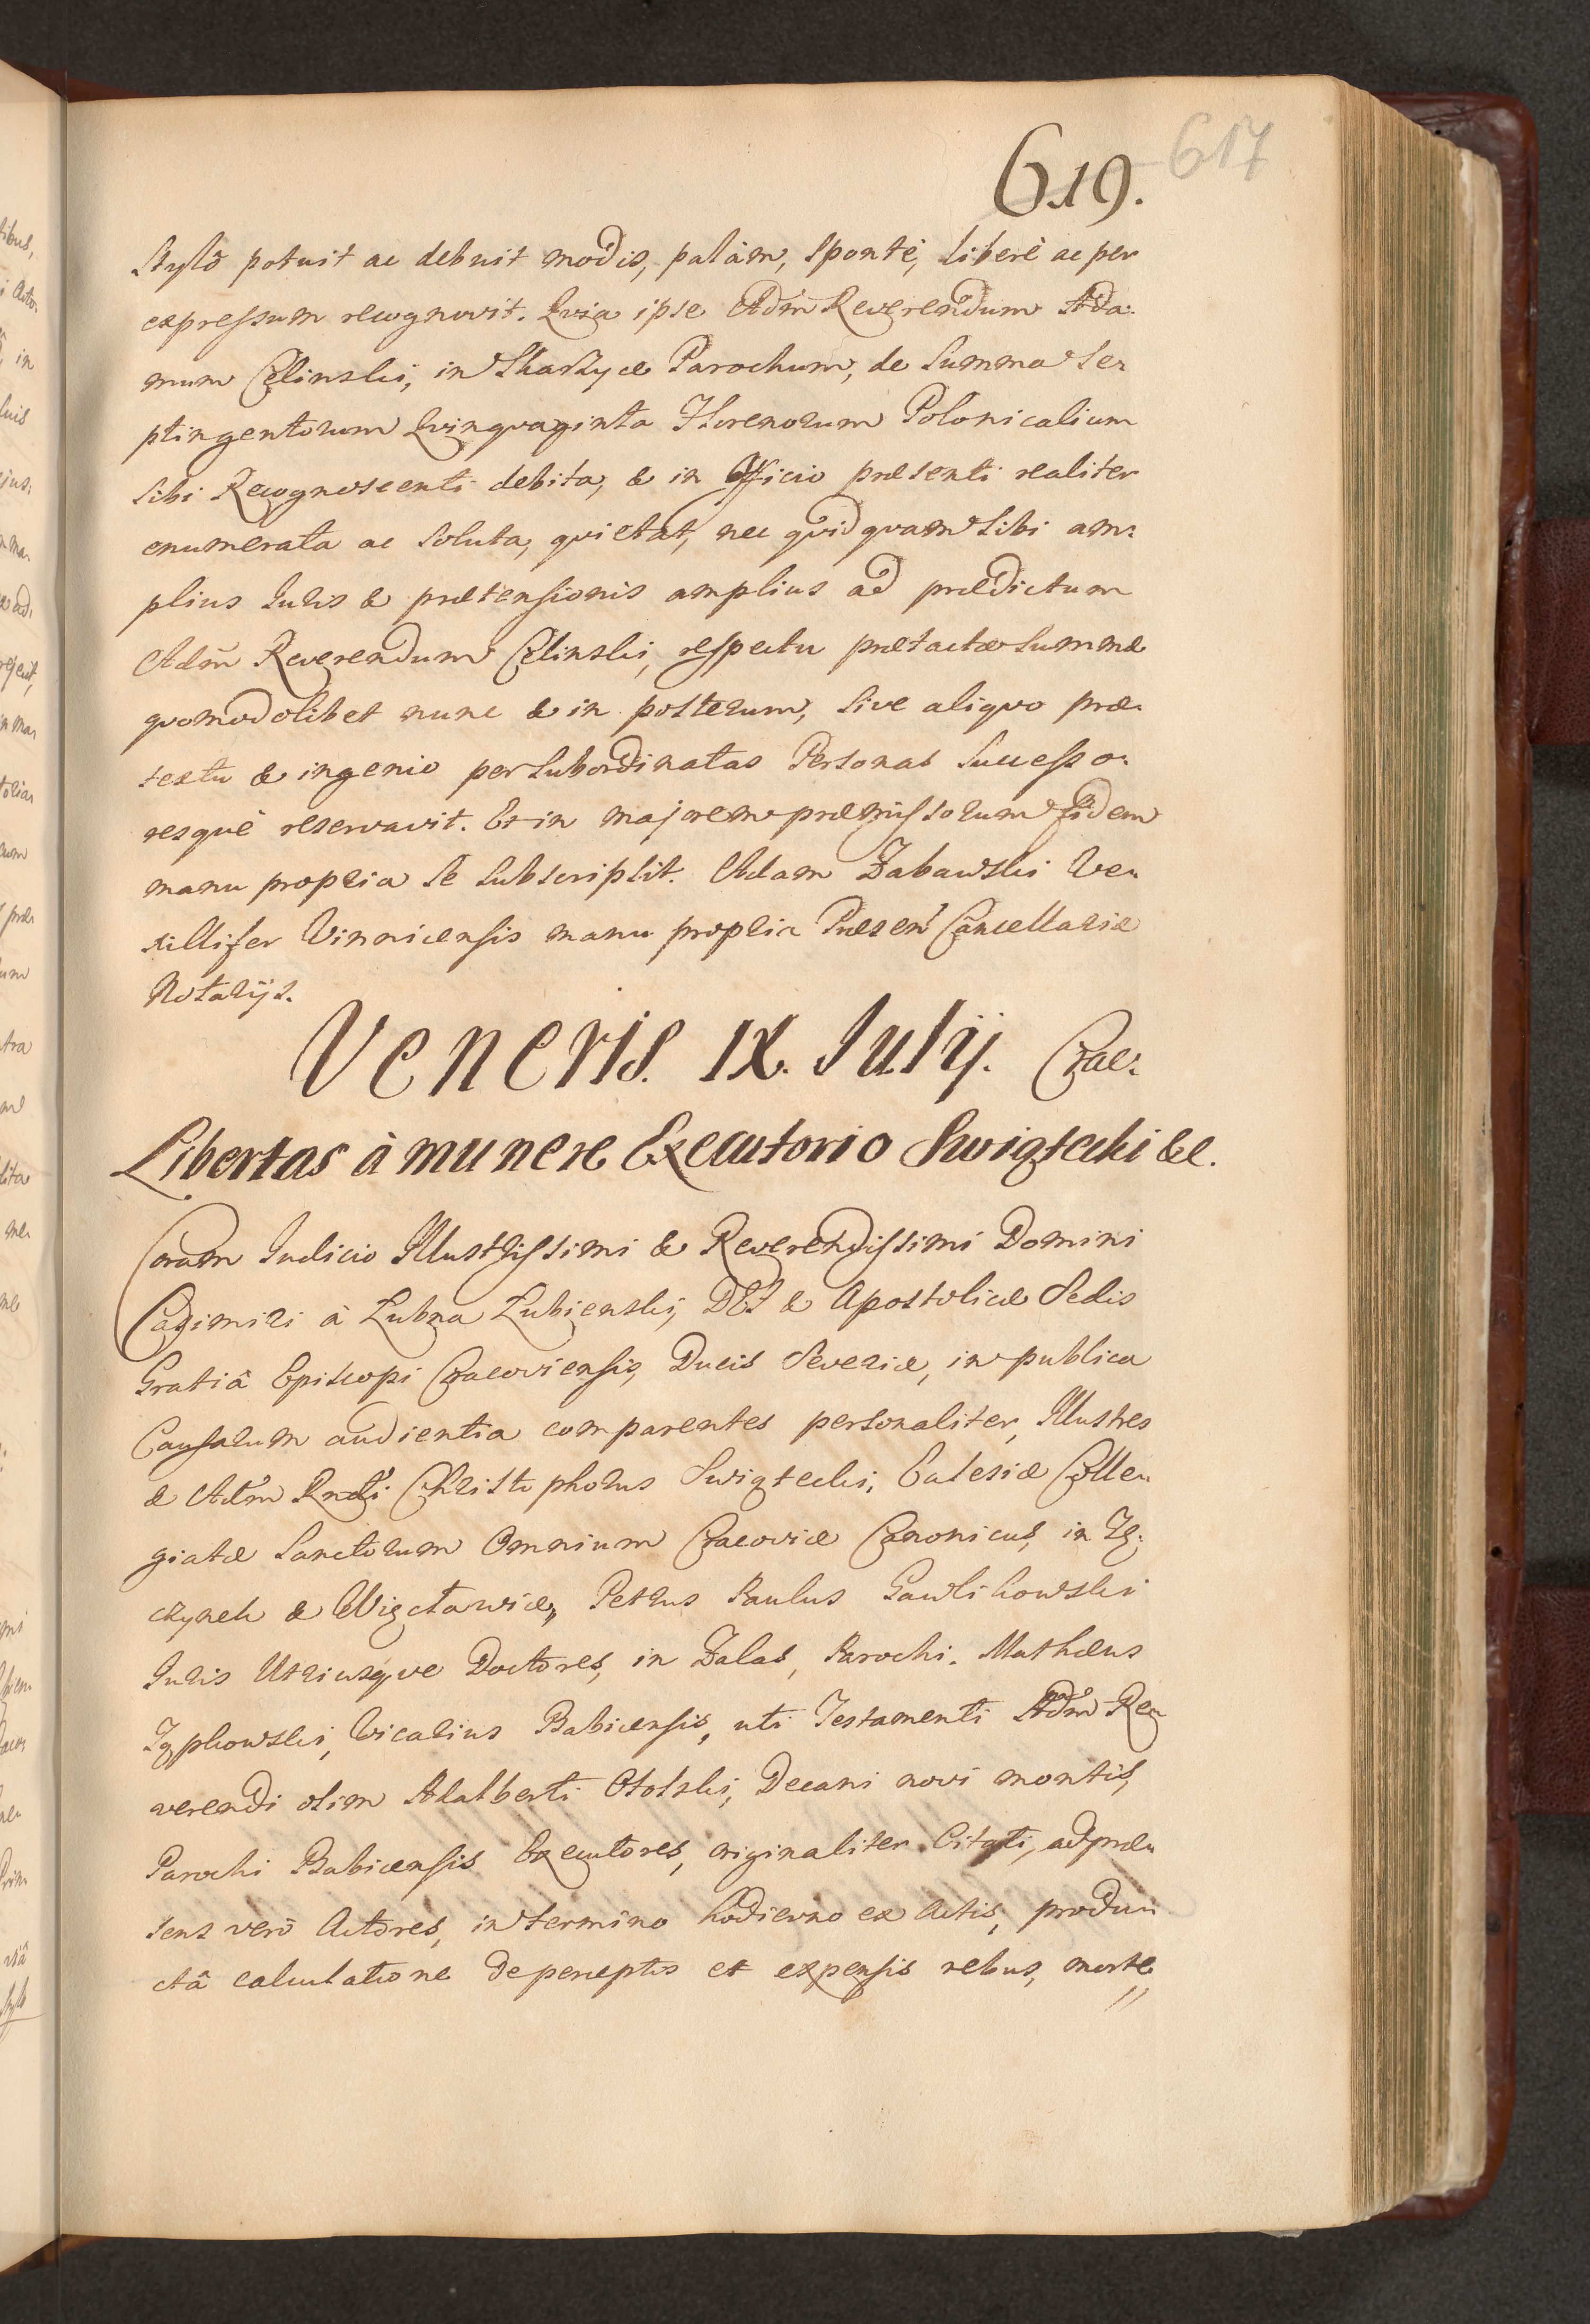 619. 617
Stylô potuit ac debuit modis, palàm, Spontè, Liberè ac per
expressum recognovit. Qvia ipse Adm̃ Reverendum Ada:
mum Celinski, in Skarzyce Parochum, de Summa Se:
ptingentorum Qvinqvaginta Florenorum Polonicalium
Sibi Recognoscenti debita, & in Officio præsenti realiter
enumerata ac Soluta, qvietat, nec qvidqvam Sibi am:
plius Iuris & prætensionis amplius ad prædictum
Adm̃ Reverendum Celinski, respectu prætactæ Summæ
qvomodolibet nunc & in posterum, Sive aliqvo præ:
textu & ingenio per Subordinatas Personas Successo:
resqvè reservavit. Et in majorem præmissorum fidem
manu propria Se Subscripsit. Adam Zabawski Ve:
xillifer Vinnicensis manu propria Præsen Cancellariæ
Notarijs.
Veneris. IX. Iulij. Crac:
Libertas à munere Executorio Swiątecki &c.
Coram Iudicio Illustrissimi & Reverendissimi Domini
Casimiri à Łubna Łubienski, DEI & Apostolicæ Sedis
Gratiâ Episcopi Cracoviensis, Ducis Severiæ, in publica
Causarum audientia comparentes personaliter, Illustres
& Adm̃ Rndi Christophorus Swiątecki, Eclesiæ Colle:
giatæ Sanctorum Omnium Cracoviæ Canonicus, in Tę:
czynek & Więcławice, Petrus Paulus Gawlikowski
Iuris Utriusqve Doctores, in Zalas, Parochi. Mathæus
Zyphowski, Vicarius Babicensis, uti Testamenti Adm̃ Re:
verendi olim Adalberti Ototski, Decani novi montis,
Parochi Babicensis Executores, originaliter Citati, ad præ:
sens verò Actores, in termino hodierno ex Actis, produ:
ctâ calculatione de perceptis et expensis rebus, morte